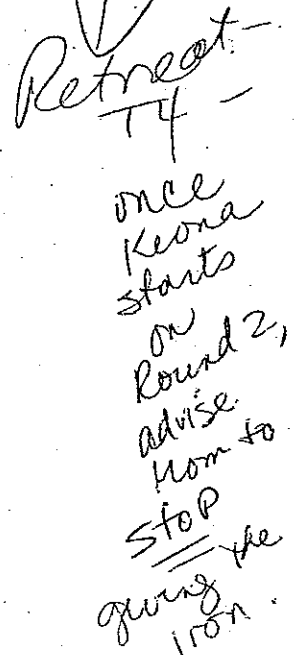 Retreat -
T4 -
once
Keona
starts
on
Round 2,
advise
Mom to
STOP
giving the
iron.